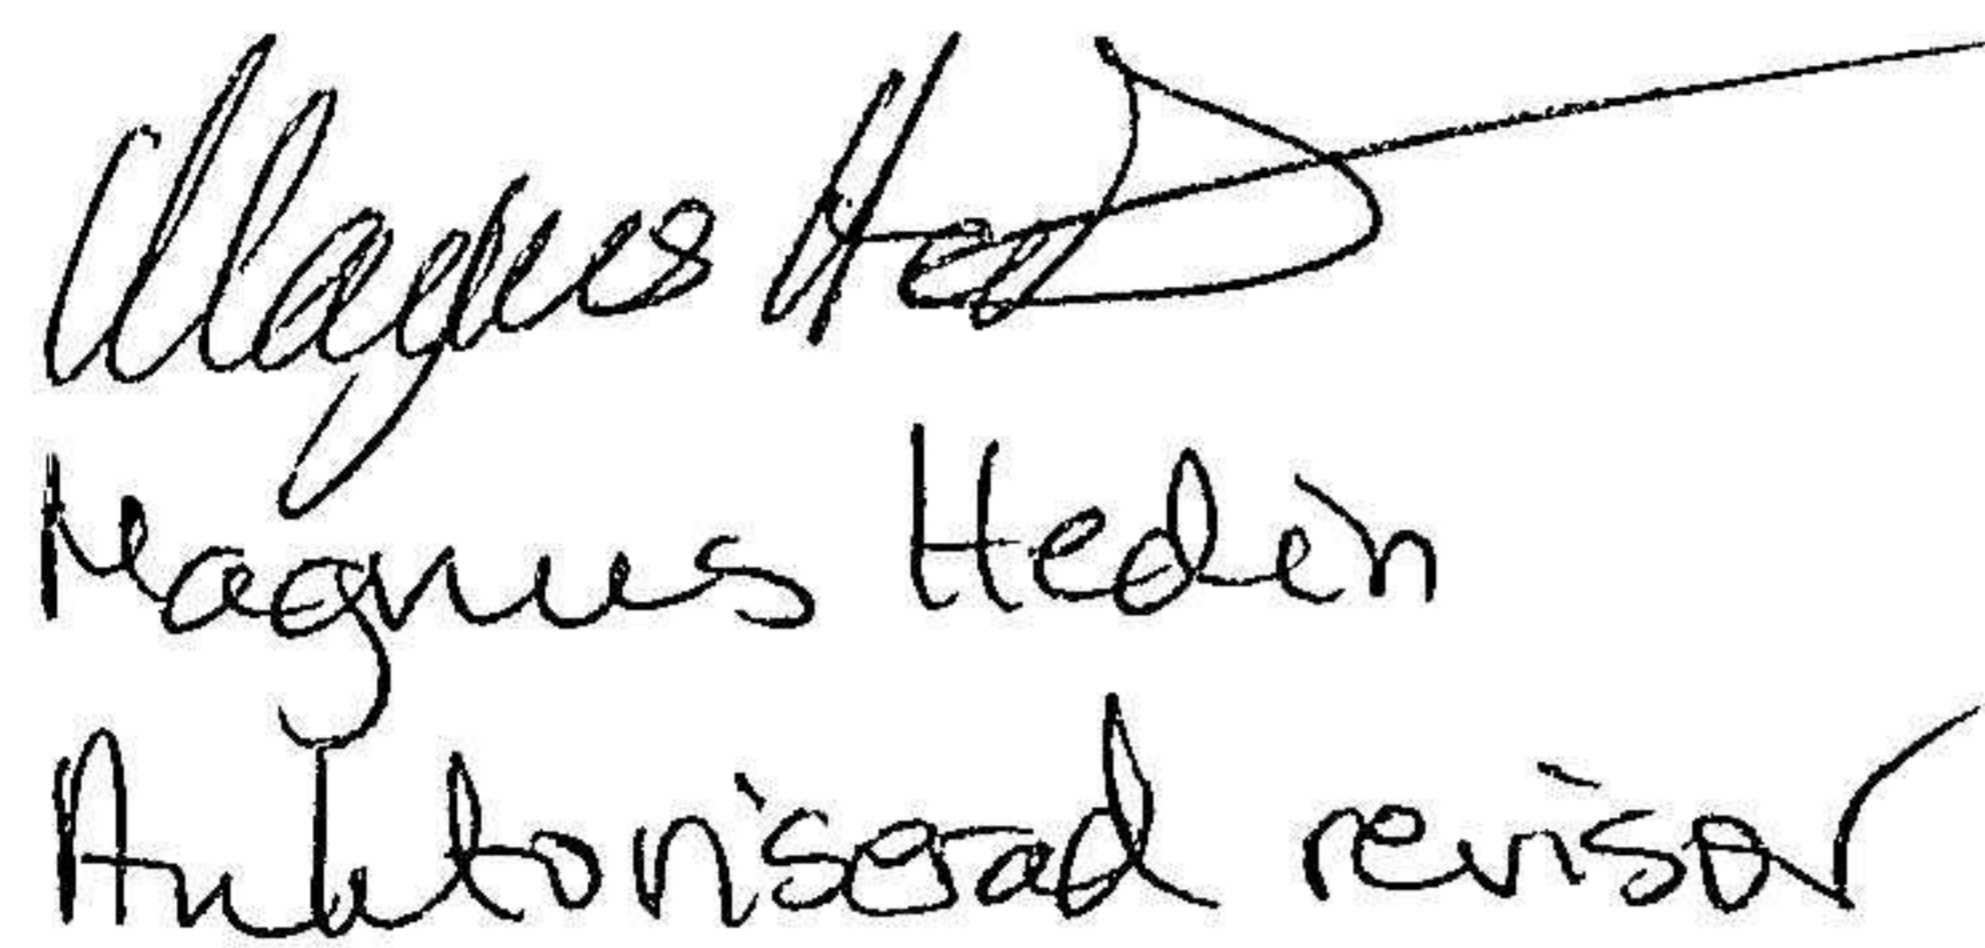 Magnus Hed
Magnus Hedin
Auktoriserad revisor